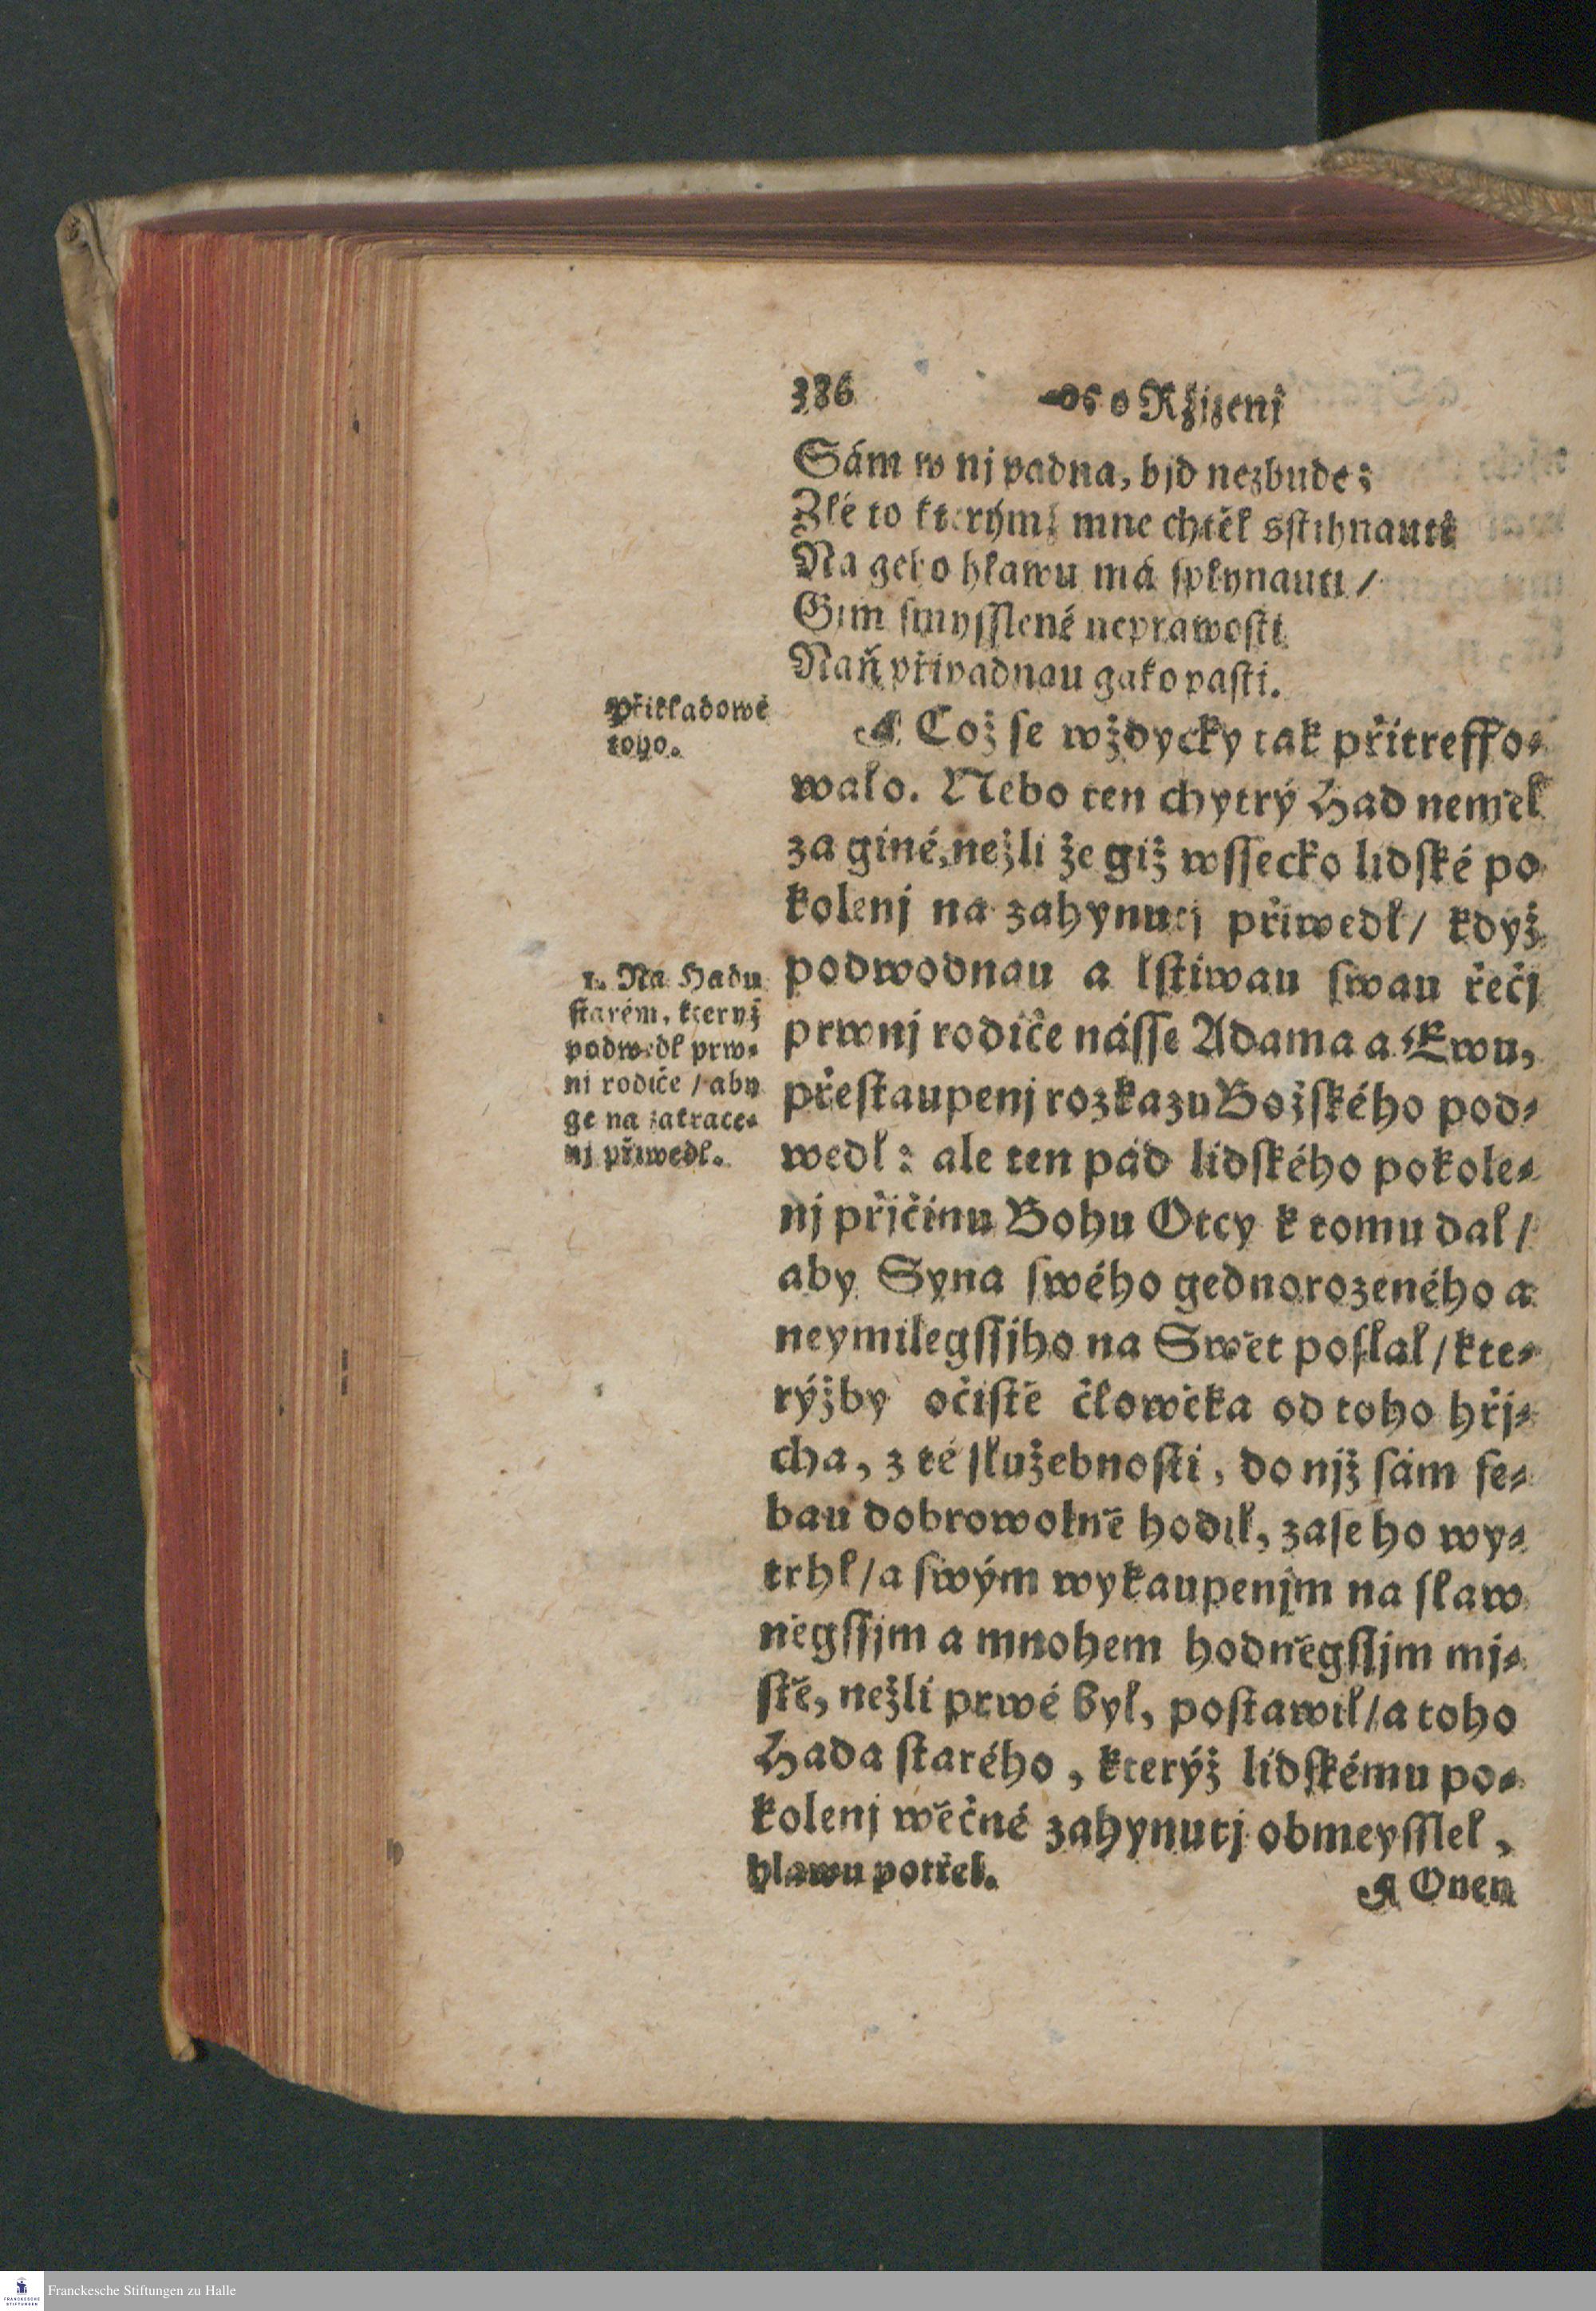 386 o Ržizenj
Sám w nj padna, bjd nezbude:
Zlé to kterýmž mne chtěl sstihnauti
Na geho hlawu má splynauti /
Gim smyšslené neprawosti
Naň připadnau gako pasti.
Přikladowé
toho.
A Což se wždycky tak přitreffo-
walo. Nebo ten chytrý Had neměl
za giné, nežli že giž wssecko lidské po
kolenj na zahynutj přiwedl / když
1. Na Hadu
starém, kteryž
podwedl prw-
ni rodiče / aby
ge na zatrace-
nj přiwedl.
podwodnau a lstiwau swau řečj
prwnj rodiče násse Adama a Ewu,
přestaupenj rozkazu Božského pod-
wedl: ale ten pád lidského pokole-
nj přjčinu Bohu Otcy k tomu dal /
aby Syna swého gednorozeného a
neymilegssjho na Swět poslal / kte-
rýžby očistě člowěka od toho hřj-
cha, z té služebnosti, do njž sám se-
bau dobrowolně hodil, zase ho wy-
trhl / a swým wykaupenjm na slaw
něgssjm a mnohem hodněgssjm mj-
stě, nežli prwé byl, postawil / a toho
Hada starého, kterýž lidskému po-
kolenj wěčné zahynutj obmeysslel,
hlawu potřel.
A Onen
Franckesche Stiftungen zu Halle
FRANCKESCHE
STIFTUNGEN